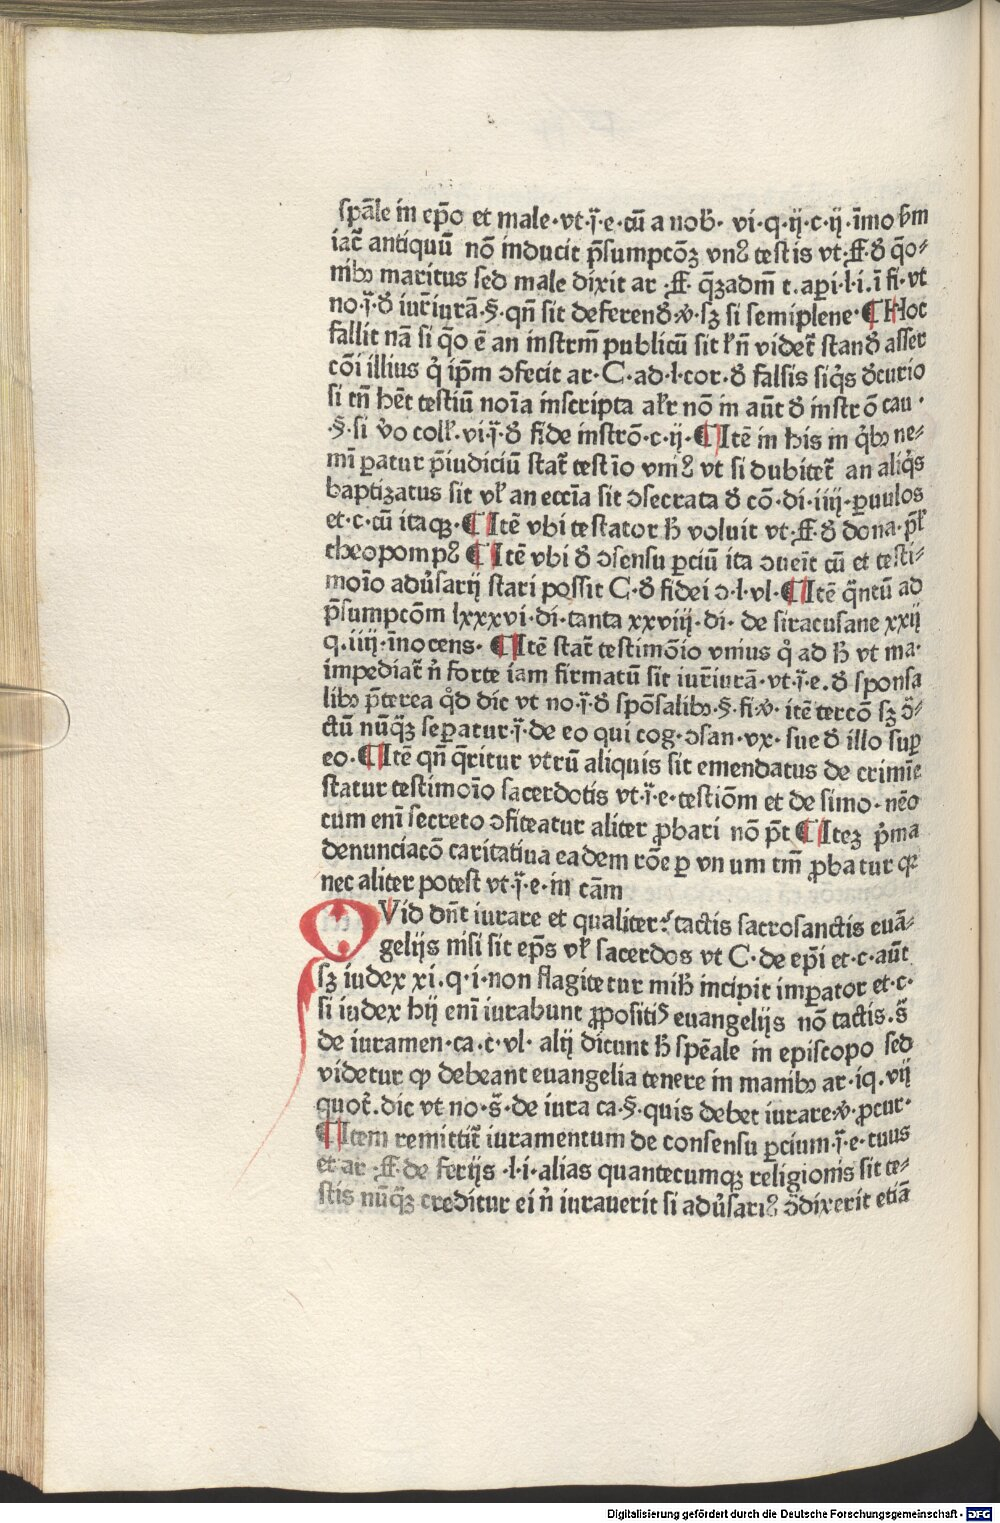 spāle in ep̄o et male·vt·j̄·e·cū a nob̄· vi·q·ij·c·ij·īmo v̄m
iac̄ antiquū nō inducit p̄sumpcōꝫ vnꝰ testis vt·ff·ꝺ̄ q̄o⸗
nibꝰ maritus sed male dixit ar ·ff· q̄ꝫadm̄ t·aꝑi·l·i·ī fi·vt
no·j̄·ꝺ̄ iur̄iurā·§·qn̄ sit deferenꝺ̄·v̓·sꝫ si semiplene·¶Hoc
fallit nā si q̄o ē an instrm̄ publicū sit ł n̄ videt̄ stanꝺ̄ asser
cōi illius q̓ ip̄m ↄfecit ar·C·ad·l·cor·ꝺ̄ falsis siq̓s ꝺ̄curio
si tn̄ hēt testiū noīa inscripta al̓r nō in aūt ꝺ̄ instr̄o cau·
·§·si v̓o coll̓·vi·j̄·ꝺ̄ fide instrō·c·ij·¶Itē in his in q̓bꝰ ne⸗
mī ꝑatur p̄iudiciū stat̄ test īo vniꝰ vt si dubitet̄ an aliq̓s
baptizatus sit vł an eccīa sit ↄsecrata ꝺ̄ cō·di·iiij·ꝑuulos
et·c·cū itaqꝫ·¶Itē vbi testator h̄ voluit vt·ff·ꝺ̄ dona·p̄ł
theopompꝰ ¶Itē vbi ꝺ̄ ↄsensu ꝑciū ita ↄueīt cū et testi⸗
moīo adu̓sarij stari possit C·ꝺ̄ fidei ↄ·l·vl·¶Itē q̄ntū ad
p̄sumptōm lxxxvi·di·tanta xxviij·di· de siracusane xxij
q·iiij·īnocens· ¶Itē stat̄ testimōio vnius q̓ ad h̄ vt ma·
impediat̄ n̓ forte iam firmatū sit iur̄iurā·vt·j̄·e·ꝺ̄ sponsa
libꝰ p̄terea q̓d dic vt no·j̄·ꝺ̄ spōsalibꝰ·§·fi·v̓· itē tercō sꝫ ↄ̄⸗
ctū nūq̄ꝫ seꝑatur·j̄·de eo qui cog·ↄsan·vx· sue ꝺ̄ illo suꝑ
eo·¶Itē qn̄ q̄ritur vtrū aliquis sit emendatus de crimīe
statur testimoīo sacerdotis vt·j̄·e·testiōm et de simo·nēo
cum enī secreto ↄfiteatur aliter ꝓbari nō p̄t ¶Iteꝫ p̓ma
denunciacō caritatiua eadem rōe ꝑ vn um tm̄ ꝓbatur qꝛ
nec aliter potest vt·j̄·e·in cām
QVid dn̄t iurare et qualiter⸵ tactis sacrosanctis euā⸗
gelijs nisi sit ep̄s vł sacerdos vt C·de ep̄i et·c·aūt
sꝫ iudex xi·q·i·non flagitetur mih̄ incipit imꝑator et·c·
si iudex hij enī iurabunt ꝓpositis euangelijs nō tactis·s̄
de iuramen·ca·c·vl· alij dicunt h̄ spēale in episcopo sed
videtur ꝙ debeant euangelia tenere in manibꝰ ar·iq·vij
quot̄·dic vt no·s̄·de iura ca·§·quis debet iurare·v̓·ꝓcur·
¶Item remittit̄ iuramentum de consensu ꝑcium·j̄·e·tuus
et ar ·ff·de ferijs ·l·i·alias quantecumqꝫ religionis sit te⸗
stis nūq̄ꝫ creditur ei n̓ iurauerit si adu̓sariꝰ ↄ̄dixerit etiā
Digitalisierung gefördert durch die Deutsche Forschungsgemeinschaft - DFG